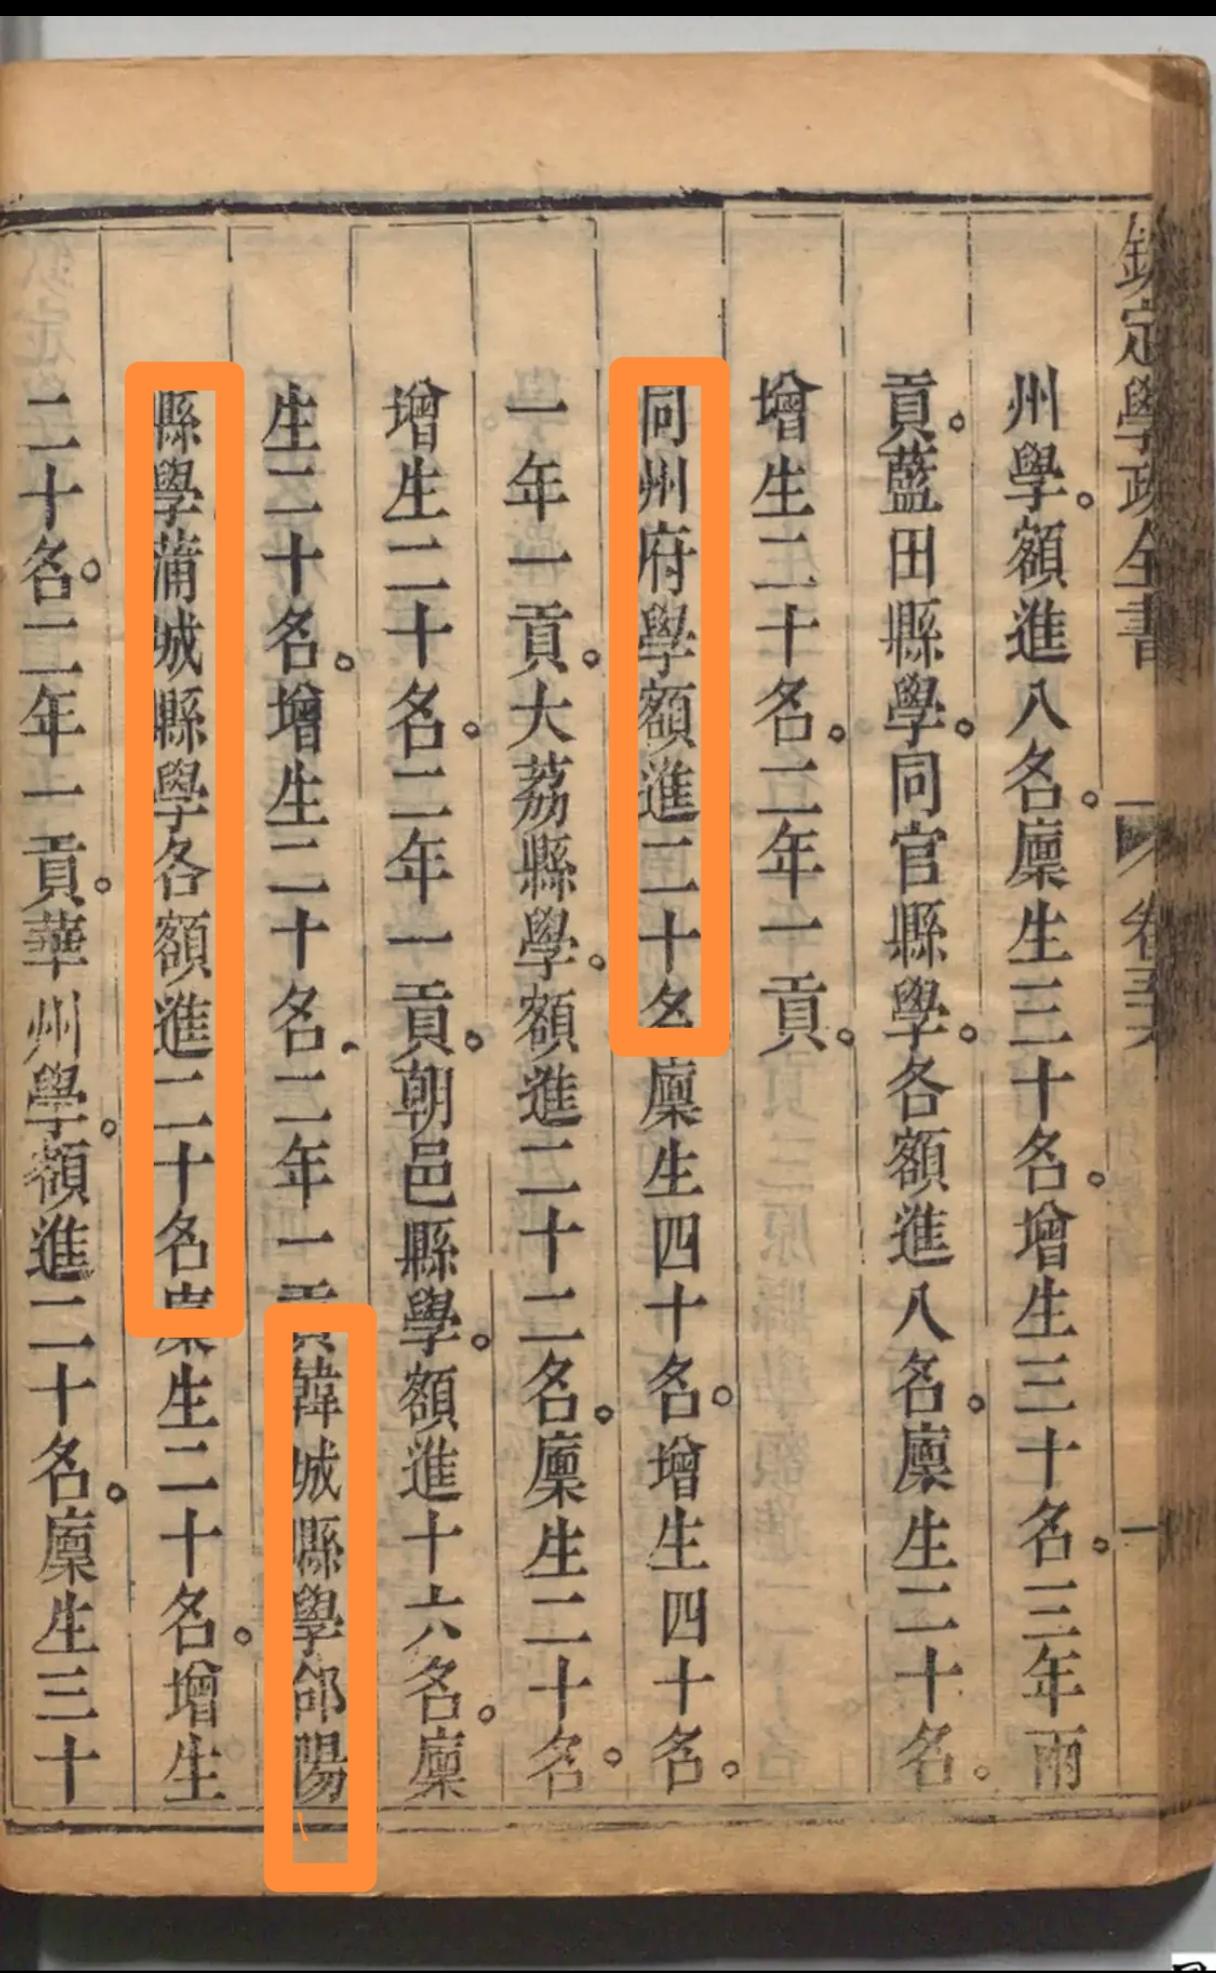 欽定學政全書 卷五六 一
州學。額進八名。廩生三十名。增生三十名。三年兩
貢。藍田縣學。同官縣學。各額進八名。廩生二十名。
增生二十名。二年一貢。
同州府學額進二十名廩生四十名。增生四十名。
一年一貢。大荔縣學。額進二十二名。廩生二十名。
增生二十名。二年一貢。朝邑縣學。額進十六名。廩
生二十名。增生二十名。二年一貢韓城縣學郃陽
縣學蒲城縣學各額進二十名廩生二十名。增生
二十名。二年一貢。華州學。額進二十名。廩生三十